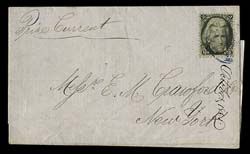 Price Current
Mess. E. M. Crawford
New York